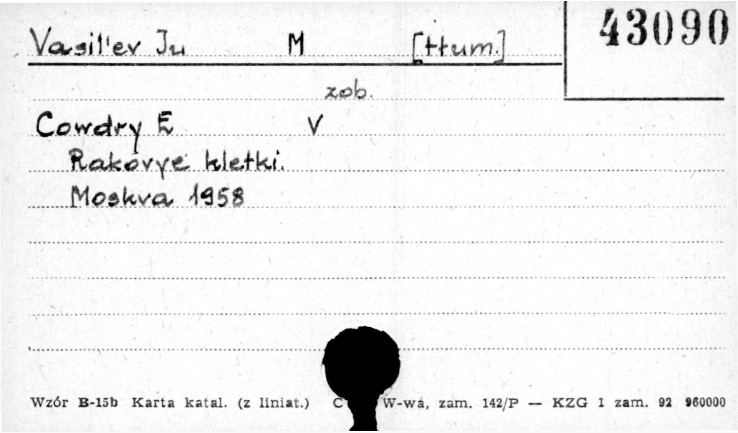 43090
Vasil'ev Ju M [tłum.]
zob.
Cowdry E V
Rakovye kletki.
Moskva 1958
Wzór B-15b Karta katal. (z liniat.) C W-wa, zam. 142/P — KZG 1 zam. 92 960000